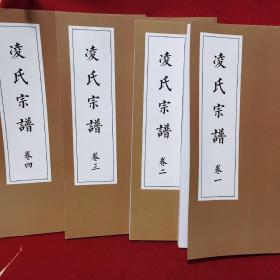 凌氏宗譜
卷四
凌氏宗譜
卷三
凌氏宗譜
卷二
凌氏宗譜
卷一